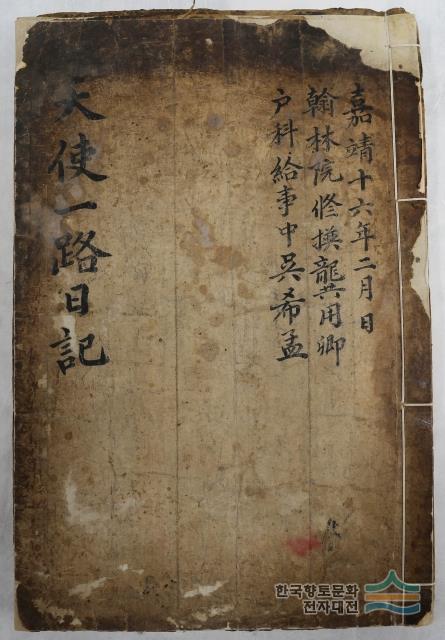 嘉靖十六年二月日
翰林院修撰龔用卿
户科給事中吳希孟
天使一路日記
한국향토문화
전자대전